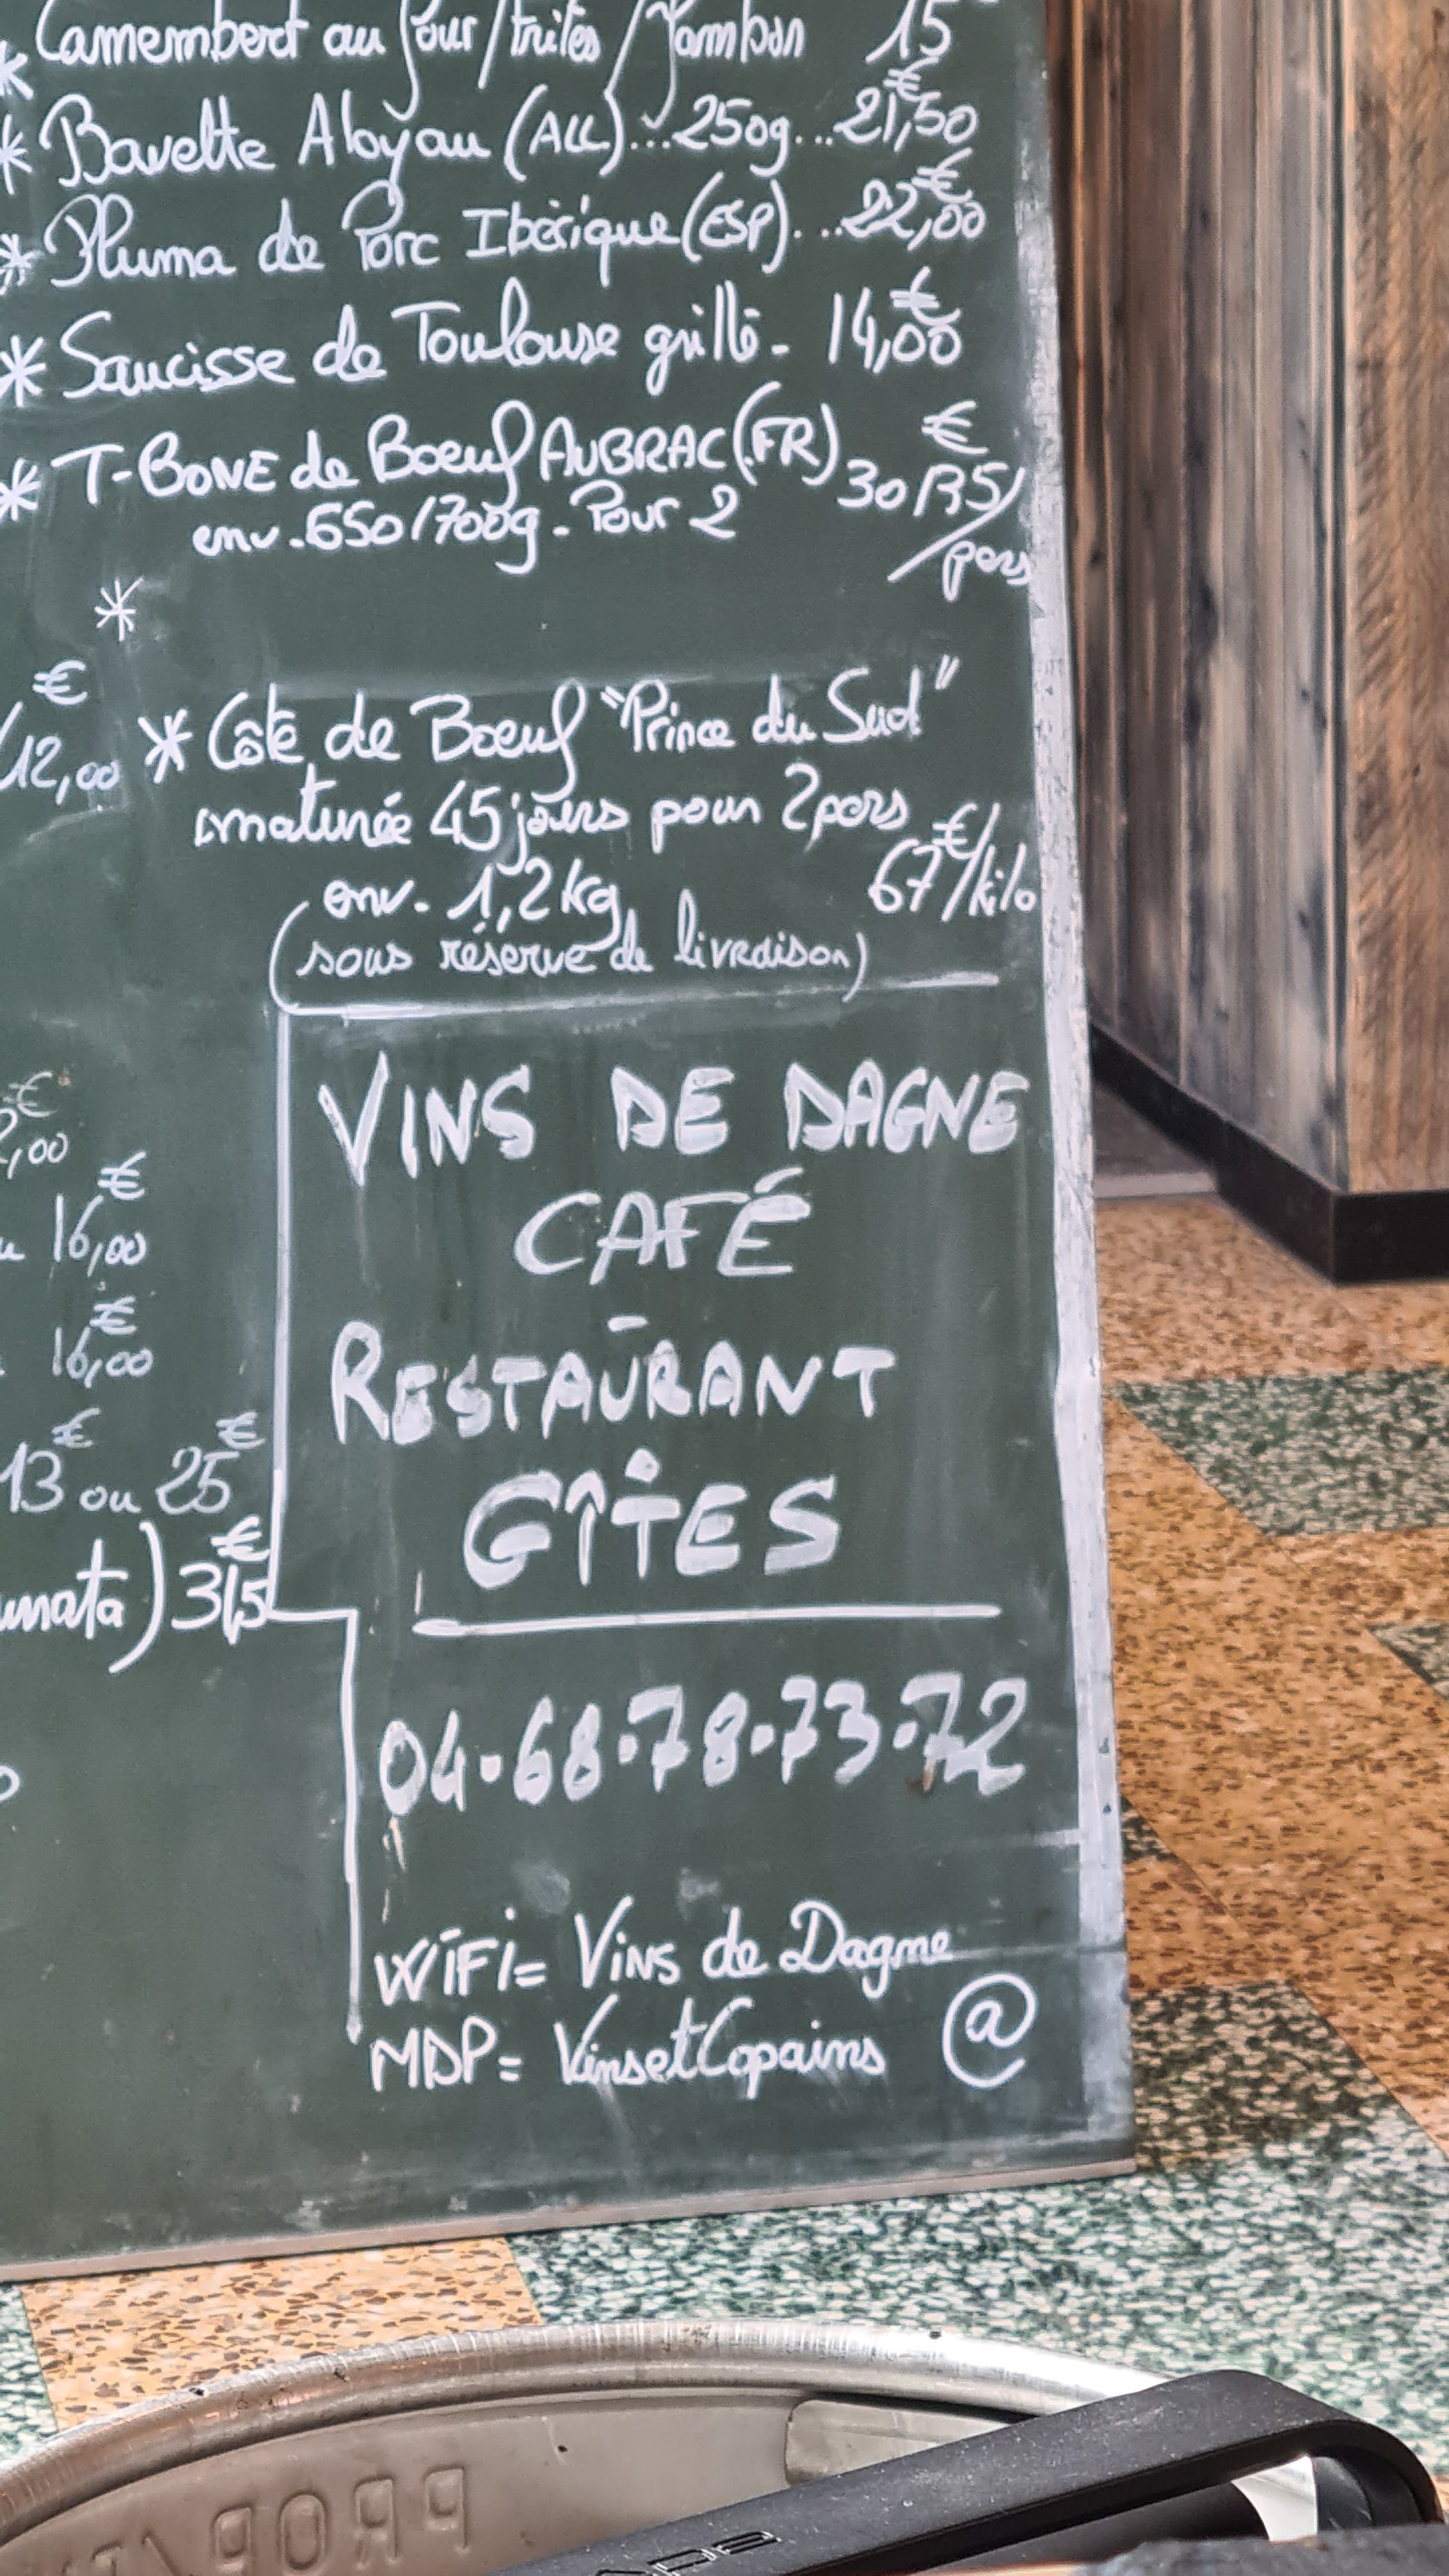 * Camembert au four/frites/Jambon 15
* Bavette Aloyau (ALL)...250g...21,50€
* Pluma de Porc Ibérique (ESP)...22,00€
* Saucisse de Toulouse grillé - 14,00€
* T-BONE de Boeuf AUBRAC (FR) 30€
env. 650/700g - Pour 2 /pers
*
12,00€
* Côte de Boeuf "Prince du Sud"
maturée 45 jours pour 2 pers
env. 1,2kg 67€/kilo
(sous réserve de livraison)
VINS DE DAGNE
CAFÉ
-
RESTAURANT
GÎTES
,00€
16,00€
16,00€
13€ ou 25€
04.68.78.73.72
WIFI= Vins de Dagne
MDP= VinsetCopains @
PROP